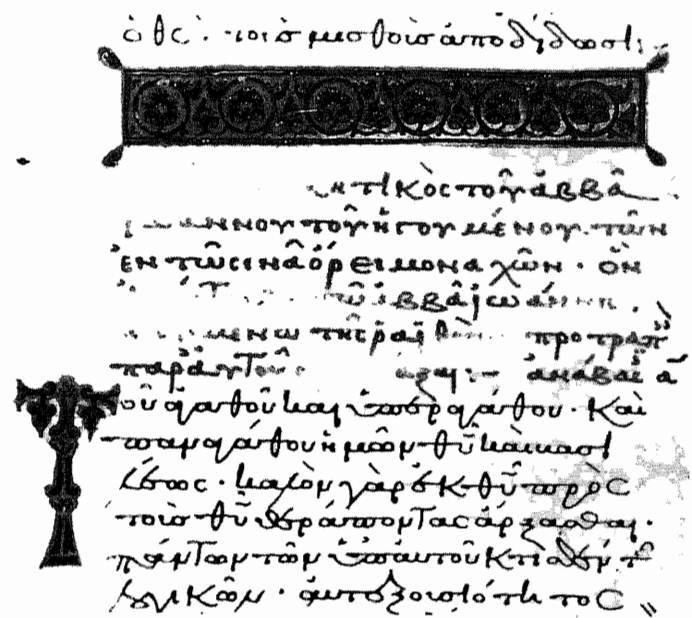 ὁ θς· τοῖσ μισθοῖσ ἀποδίδωσι:
τικὸς τοῦ ἀββᾶ
ἰωάννου τοῦ ἡγουμένου τῶν
ἐν τῶ σινᾶ ὄρει μοναχῶν· ὃν
τῶ ἀββᾶ ἰωάννη
τῆς ῥαϊθοῦ προτραπ
παρ᾽ αὐτοῦ
οῦ ἀγαθοῦ καὶ ὑπεραγάθου· καὶ
παναγάθου ἡμῶν θῦ καὶ βασι
λέως· καλὸν γὰρ ἐκ θῦ πρὸς
τοὺσ θῦ θεράποντας ἄρξασθαι·
πάντων τῶν ὑπ᾽ αὐτοῦ κτισθέντ
λογικῶν· αὐτεξουσιότητος